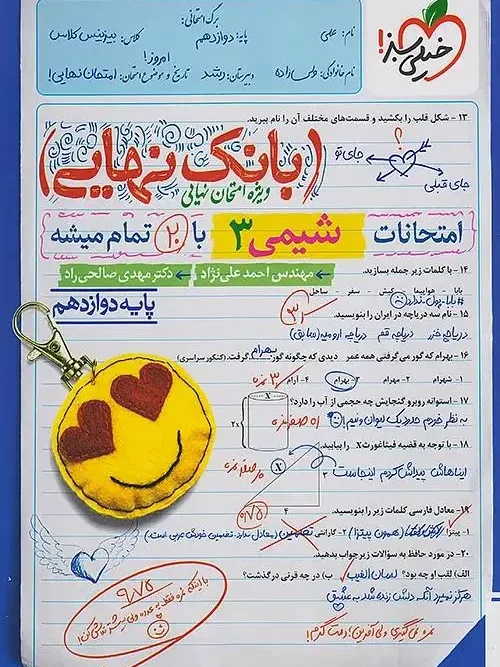 خیلی سبز!
برگ امتحانی:
نام: علی
پایه: دوازدهم
کلاس: بیزینس کلاس
امروز!
نام خانوادگی:
دبیرستان: رشد
تاریخ و موضوع امتحان: امتحان نهایی!
۱۳ - شکل قلب را بکشید و قسمت‌های مختلف آن را نام ببرید.
؟
جای تو
جای قبلی
(بانک نهایی)
ویژه امتحان نهایی
امتحانات شیمی ۳ با ۲۰ تمام میشه
مهندس احمد علی‌نژاد
دکتر مهدی صالحی‌راد
پایه دوازدهم
۱۴ - با کلمات زیر جمله بسازید.
بابا - هواپیما - کیش - سفر - ساحل
#بابا_پول_ندارد
۱۵ - نام سه دریاچه در ایران را بنویسید.
دریاچه خزر دریاچه قم دریاچه ارومیه (سابق)
۱۶ - بهرام که گور می‌گرفتی همه عمر دیدی که چگونه گور بهرام گرفت. (کنکور سراسری)
۱- شهرام ۲- مهرام ۳- بهرام ۴- آرام
۱۷ - استوانه روبرو گنجایش چه حجمی از آب را دارد؟
X
2X
به نظر خودم حدود یک لیوان و نیم!
۱۸ - با توجه به قضیه فیثاغورث X را بیابید.
ایناهاش پیداش کردم اینجاست
X
۳
۴
۱۹- معادل فارسی کلمات زیر را بنویسید.
۱- پیتزا (همون پیتزا) ۲- گارانتی تضمین (معادل ندارد. تضمین خودش عربی است)
۹/۷۵
۲۰- در مورد حافظ به سوالات زیر جواب بدهید.
الف) لقب او چه بود؟ لسان الغیب ب) در چه قرنی در گذشت؟
هرگز نمیرد آنکه دلش زنده شد به عشق
۹/۷۵
نمره نمی‌گیری ولی آفرین! دمت گرم!